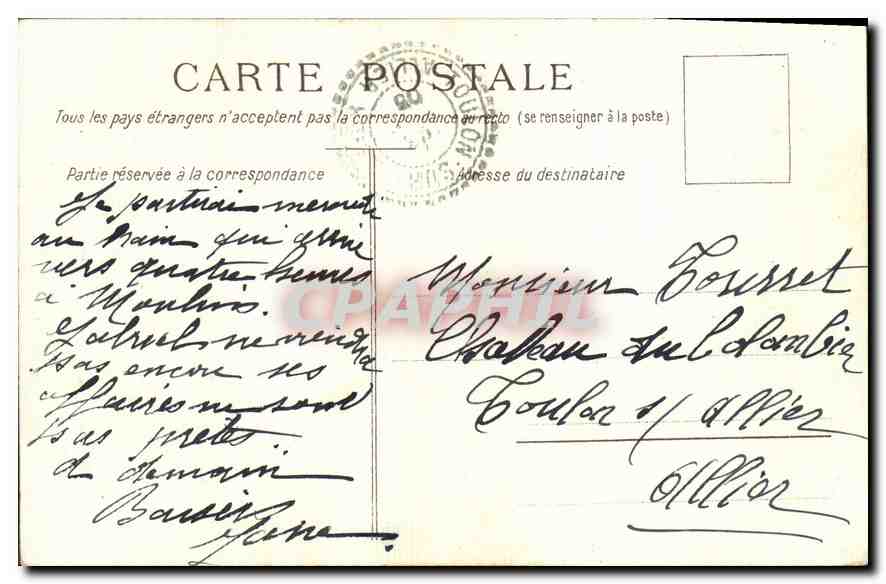 CARTE POSTALE
Tous les pays étrangers n'acceptent pas la correspondance au recto (se renseigner à la poste)
Partie réservée à la correspondance
Adresse du destinataire
TOULON SUR ALLIER
05
Je partirai mercredi
au train qui arrive
vers quatre heures
à Moulins.
Gabriel ne viendra
pas encore ses
affaires ne sont
pas pretes
à demain
Baisers
Monsieur Tousset
Chateau du Colombier
Toulon s/ Allier
Allier
CPAPHIL